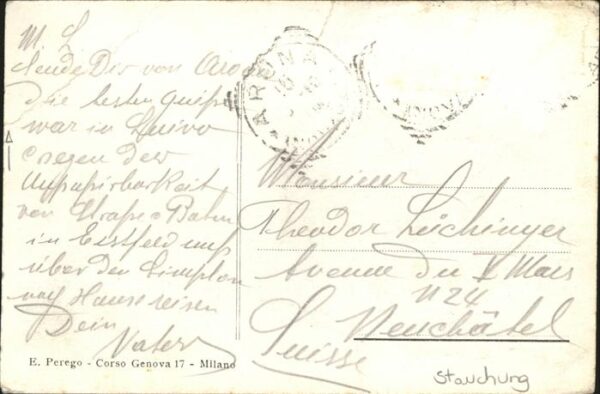 M. L.
Sende Dir von Aro
die besten Grüsse
war in Luino
wegen der
Unpassirbarkeit
von Strasse & Bahn
in Erstfeld muss
über den Simplon
nach Hause reisen
Dein
Vater
E. Perego - Corso Genova 17 - Milano
ARONA
Monsieur
Theodor Löchinger
Avenue du 1 Mars
N 24
Neuchâtel
Suisse
Stauchung